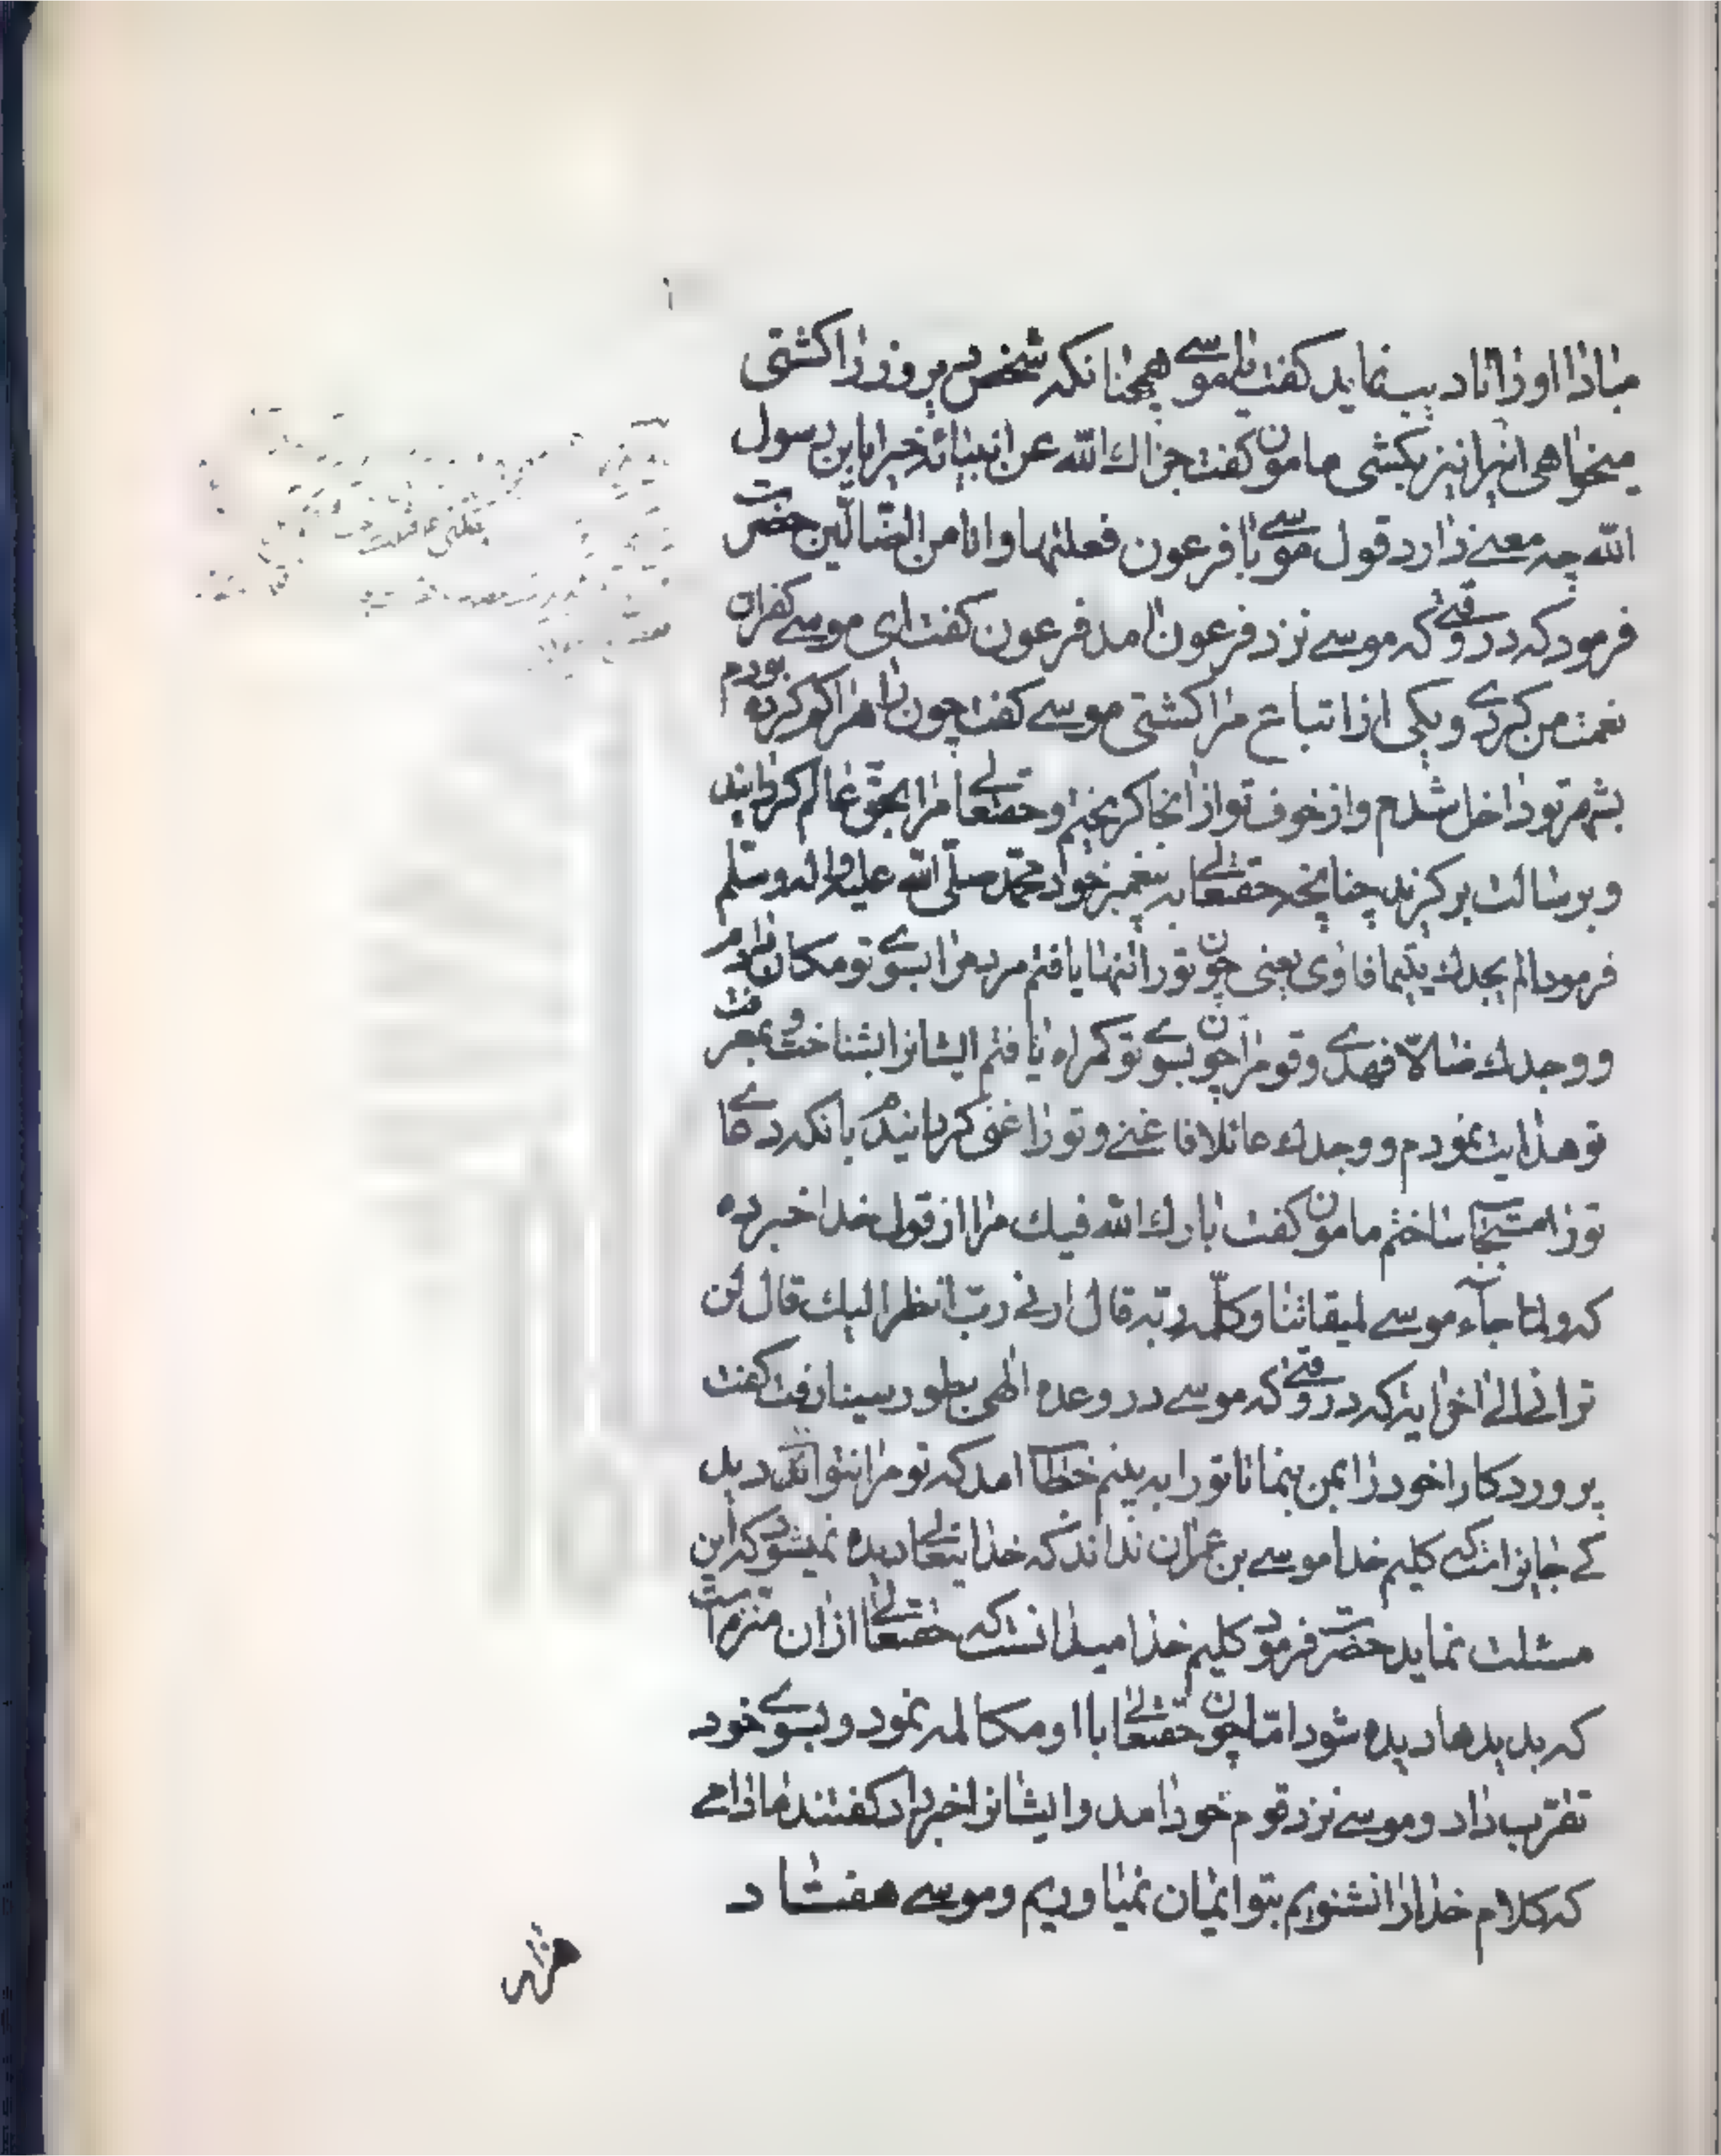 مبادا او را تادیب نماید گفت یا موسی همچنانکه شخص پریروز را کشتی
میخواهی اینرا نیز بکشی مامون گفت جزاک الله عن انبیائه خیرا یابن رسول
الله چه معنی دارد قول موسی با فرعون فعلتها وانا من الضالین حضرت
فرمود که در وقتی که موسی نزد فرعون امد فرعون گفت ای موسی کفران
نعمت من کردی و یکی از اتباع مرا کشتی موسی گفت چون راه را گم کرده بودم
بشهر تو داخل شدم و از خوف تو از انجا گریختم و حقتعالی مرا بحق عالم گردانید
و برسالت برگزید چنانچه حقتعالی به پیغمبر خود محمد صلی الله علیه واله وسلم
فرمود الم یجدک یتیما فاوی یعنی چون تو را تنها یافتم مردم را بسوی تو مکان دادم
ووجدک ضالا فهدی وقوم را چون بسوی تو گمراه یافتم ایشانرا بشناخت و معرفت
تو هدایت نمودم ووجدک عائلا فاغنی وتو را غنی گردانیدم بانکه دعای
تو را مستجاب ساختم مامون گفت بارک الله فیک مرا از قول خدا خبر ده
که ولما جاء موسی لمیقاتنا وکلمه ربه قال رب ارنی انظر الیک قال لن
ترانی الی اخر ایه که در وقتی که موسی در وعده الهی بطور سینا رفت گفت
پروردگارا خود را بمن بنما تا تو را به بینم خطاب امد که تو مرا نتوانی دید
کی جایز است که کلیم خدا موسی بن عمران نداند که خدایتعالی دیده نمیشود که این
مسئلت نماید حضرت فرمود کلیم خدا میدانست که حقتعالی ازان منزه است
که بدیدها دیده شود اما چون حقتعالی با او مکالمه نمود و بسوی خود
تقرب داد وموسی نزد قوم خود امد و ایشانرا خبر داد گفتند مادامی
که کلام خدا را نشنویم بتو ایمان نمیاوریم وموسی هفتاد